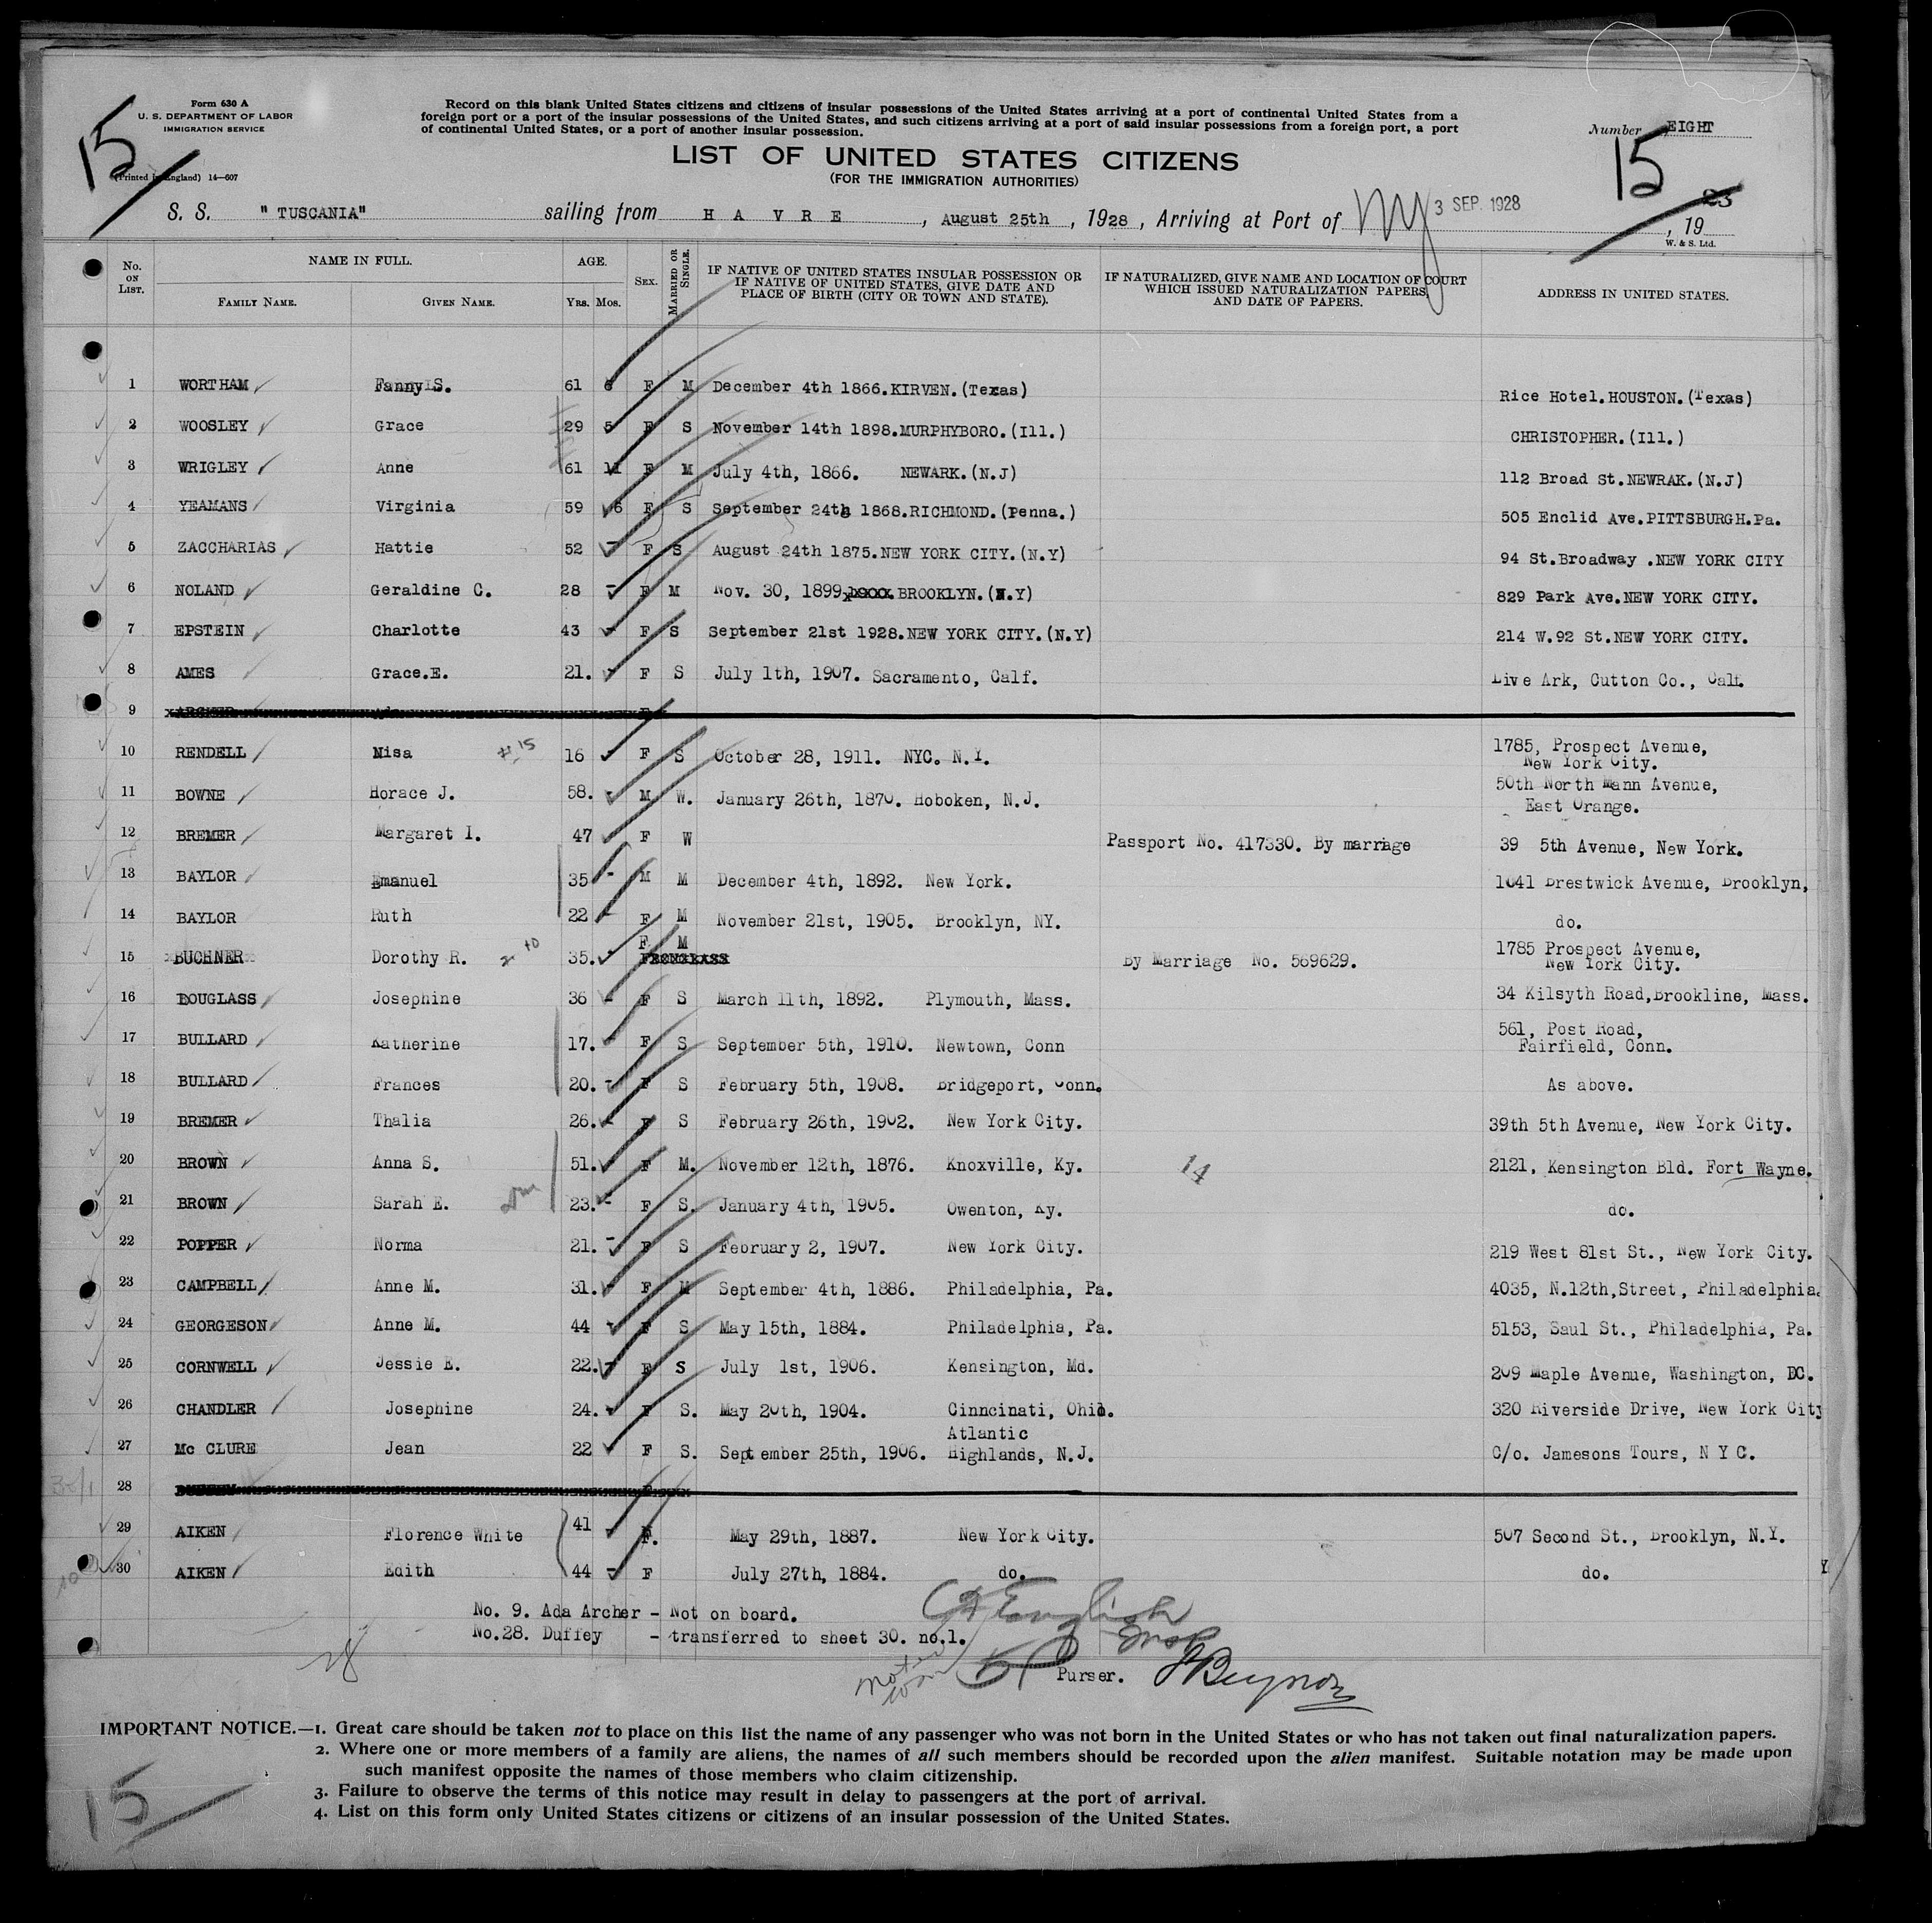 Form 630 A
U. S. DEPARTMENT OF LABOR
IMMIGRATION SERVICE
(Printed in England) 14—607
15
Record on this blank United States citizens and citizens of insular possessions of the United States arriving at a port of continental United States from a
foreign port or a port of the insular possessions of the United States, and such citizens arriving at a port of said insular possessions from a foreign port, a port
of continental United States, or a port of another insular possession.
Number EIGHT
15
LIST OF UNITED STATES CITIZENS
(FOR THE IMMIGRATION AUTHORITIES)
S. S. "TUSCANIA" sailing from H A V R E , August 25th , 1928 , Arriving at Port of NY 3 SEP. 1928 , 19
W. & S. Ltd.
No. ON LIST. NAME IN FULL. FAMILY NAME. GIVEN NAME. AGE. YRS. MOS. SEX. MARRIED OR SINGLE. IF NATIVE OF UNITED STATES INSULAR POSSESSION OR IF NATIVE OF UNITED STATES, GIVE DATE AND PLACE OF BIRTH (CITY OR TOWN AND STATE). IF NATURALIZED, GIVE NAME AND LOCATION OF COURT WHICH ISSUED NATURALIZATION PAPERS, AND DATE OF PAPERS. ADDRESS IN UNITED STATES.
1 WORTHAM Fanny S. 61 6 F M December 4th 1866.KIRVEN.(Texas) Rice Hotel.HOUSTON.(Texas)
2 WOOSLEY Grace 29 5 F S November 14th 1898.MURPHYBORO.(Ill.) CHRISTOPHER.(Ill.)
3 WRIGLEY Anne 61 11 F M July 4th, 1866. NEWARK.(N.J) 112 Broad St.NEWRAK.(N.J)
4 YEAMANS Virginia 59 6 F S September 24th 1868.RICHMOND.(Penna.) 505 Enclid Ave.PITTSBURGH.Pa.
5 ZACCHARIAS Hattie 52 - F S August 24th 1875.NEW YORK CITY.(N.Y) 94 St.Broadway .NEW YORK CITY
6 NOLAND Geraldine C. 28 - F M Nov. 30, 1899 BROOKLYN.(N.Y) 829 Park Ave.NEW YORK CITY.
7 EPSTEIN Charlotte 43 - F S September 21st 1928.NEW YORK CITY.(N.Y) 214 W.92 St.NEW YORK CITY.
8 AMES Grace.E. 21. - F S July 1th, 1907. Sacramento, Calf. Live Ark, Cutton Co., Calf.
9 ARCHER Ada F
10 RENDELL Nisa 16 F S October 28, 1911. NYC. N.Y. 1785, Prospect Avenue,
New York City.
11 BOWNE Horace J. 58. M W. January 26th, 1870. Hoboken, N.J. 50th North Mann Avenue,
East Orange.
12 BREMER Margaret I. 47 F W Passport No. 417330. By marriage 39 5th Avenue, New York.
13 BAYLOR Emanuel 35 - M M December 4th, 1892. New York. 1041 Prestwick Avenue, Brooklyn,
14 BAYLOR Ruth 22 - F M November 21st, 1905. Brooklyn, NY. do.
15 BUCHNER Dorothy R. 35. F M By Marriage No. 569629. 1785 Prospect Avenue,
New York City.
16 DOUGLASS Josephine 36 - F S March 11th, 1892. Plymouth, Mass. 34 Kilsyth Road,Brookline, Mass.
17 BULLARD Katherine 17. - F S September 5th, 1910. Newtown, Conn 561, Post Road,
Fairfield, Conn.
18 BULLARD Frances 20. - F S February 5th, 1908. Bridgeport, Conn. As above.
19 BREMER Thalia 26. - F S February 26th, 1902. New York City. 39th 5th Avenue, New York City.
20 BROWN Anna S. 51. - F M. November 12th, 1876. Knoxville, Ky. 14 2121, Kensington Bld. Fort Wayne.
21 BROWN Sarah E. 23. - F S. January 4th, 1905. Owenton, Ky. do.
22 POPPER Norma 21. - F S February 2, 1907. New York City. 219 West 81st St., New York City.
23 CAMPBELL Anne M. 31. - F M September 4th, 1886. Philadelphia, Pa. 4035, N.12th,Street, Philadelphia.
24 GEORGESON Anne M. 44 - F S May 15th, 1884. Philadelphia, Pa. 5153, Saul St., Philadelphia, Pa.
25 CORNWELL Jessie E. 22. - F S July 1st, 1906. Kensington, Md. 209 Maple Avenue, Washington, DC.
26 CHANDLER Josephine 24. - F S. May 20th, 1904. Cinncinati, Ohio. 320 Riverside Drive, New York City
27 Mc CLURE Jean 22 - F S. September 25th, 1906. Atlantic
Highlands, N.J. C/o. Jamesons Tours, N Y C.
28
29 AIKEN Florence White 41 - F. May 29th, 1887. New York City. 507 Second St., Brooklyn, N.Y.
30 AIKEN Edith 44 - F July 27th, 1884. do. do.
No. 9. Ada Archer - Not on board.
No.28. Duffey - transferred to sheet 30. no.1.
28
Purser. J Beynon
IMPORTANT NOTICE.—1. Great care should be taken not to place on this list the name of any passenger who was not born in the United States or who has not taken out final naturalization papers.
2. Where one or more members of a family are aliens, the names of all such members should be recorded upon the alien manifest. Suitable notation may be made upon
such manifest opposite the names of those members who claim citizenship.
3. Failure to observe the terms of this notice may result in delay to passengers at the port of arrival.
4. List on this form only United States citizens or citizens of an insular possession of the United States.
15